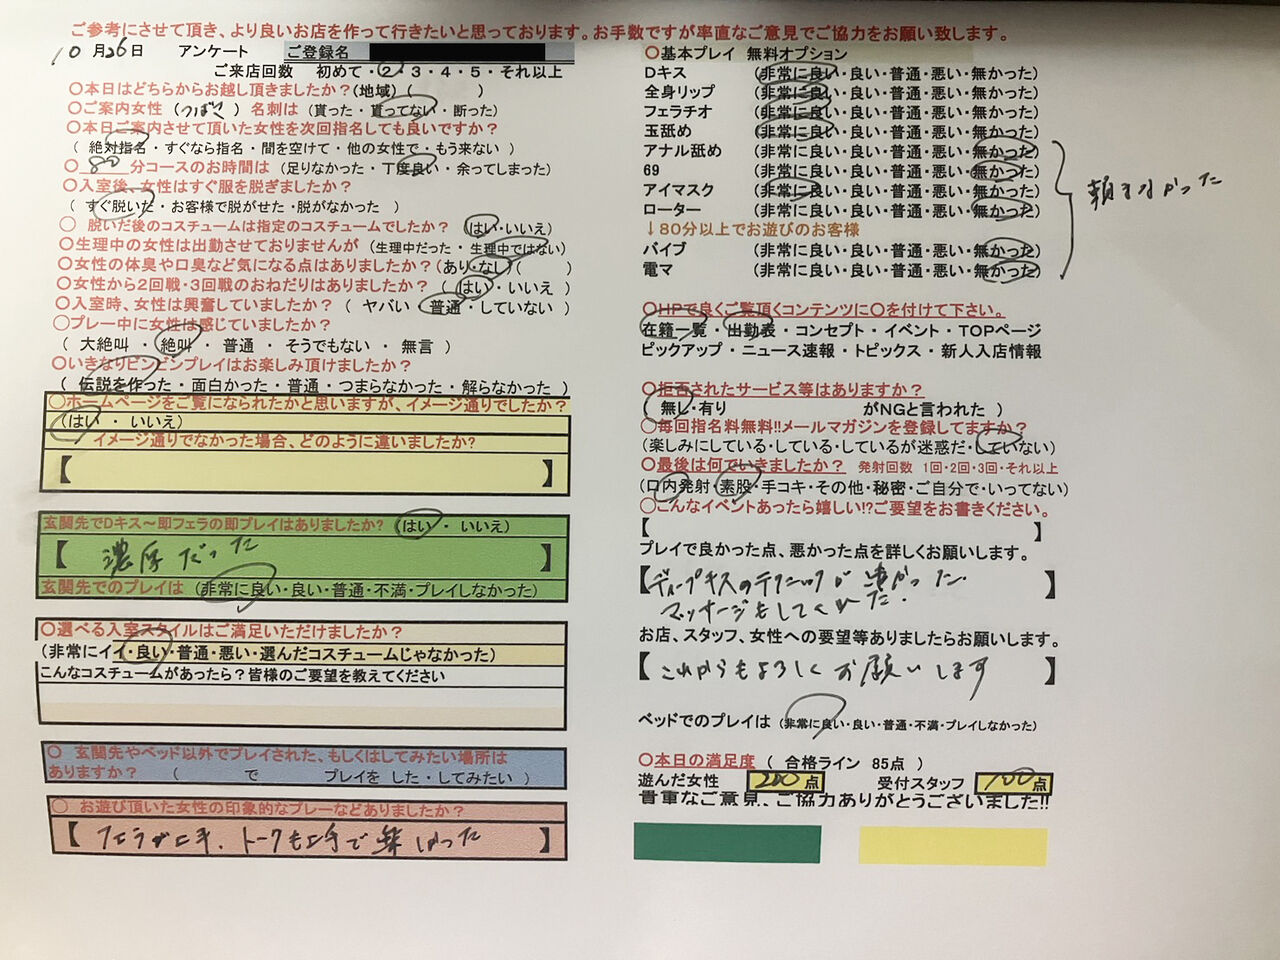 ご参考にさせて頂き、より良いお店を作って行きたいと思っております。お手数ですが率直なご意見でご協力をお願い致します。
10月26日 アンケート ご登録名
ご来店回数 初めて・2・3・4・5・それ以上
〇本日はどちらからお越し頂きましたか?(地域)( )
〇ご案内女性 (つばき) 名刺は (貰った・貰ってない・断った)
〇本日ご案内させて頂いた女性を次回指名しても良いですか?
( 絶対指名・すぐなら指名・間を空けて・他の女性で・もう来ない )
〇 80 分コースのお時間は (足りなかった・丁度良い・余ってしまった)
〇入室後、女性はすぐ服を脱ぎましたか?
( すぐ脱いだ・お客様で脱がせた・脱がなかった )
〇 脱いだ後のコスチュームは指定のコスチュームでしたか? (はい・いいえ)
〇生理中の女性は出勤させておりませんが (生理中だった・生理中ではない)
〇女性の体臭や口臭など気になる点はありましたか?(あり・なし)( )
〇女性から2回戦・3回戦のおねだりはありましたか? ( はい・いいえ )
〇入室時、女性は興奮していましたか? ( ヤバい・普通・していない )
〇プレー中に女性は感じていましたか?
( 大絶叫・絶叫・普通・そうでもない・無言 )
〇いきなりビンビンプレイはお楽しみ頂けましたか?
( 伝説を作った・面白かった・普通・つまらなかった・解らなかった )
〇ホームページをご覧になられたかと思いますが、イメージ通りでしたか?
(はい ・ いいえ)
イメージ通りでなかった場合、どのように違いましたか?
【 】
玄関先でDキス～即フェラの即プレイはありましたか? (はい ・ いいえ)
【 濃厚だった 】
玄関先でのプレイは (非常に良い・良い・普通・不満・プレイしなかった)
〇選べる入室スタイルはご満足いただけましたか?
(非常にイイ・良い・普通・悪い・選んだコスチュームじゃなかった)
こんなコスチュームがあったら?皆様のご要望を教えてください
〇 玄関先やベッド以外でプレイされた、もしくはしてみたい場所は
ありますか? ( で プレイを した・してみたい )
〇 お遊び頂いた女性の印象的なプレーなどありましたか?
【 フェラが上手、トークも上手で楽しかった 】
〇基本プレイ 無料オプション
Dキス (非常に良い・良い・普通・悪い・無かった)
全身リップ (非常に良い・良い・普通・悪い・無かった)
フェラチオ (非常に良い・良い・普通・悪い・無かった)
玉舐め (非常に良い・良い・普通・悪い・無かった)
アナル舐め (非常に良い・良い・普通・悪い・無かった)
69 (非常に良い・良い・普通・悪い・無かった)
アイマスク (非常に良い・良い・普通・悪い・無かった)
ローター (非常に良い・良い・普通・悪い・無かった)
頼まなかった
↓80分以上でお遊びのお客様
バイブ (非常に良い・良い・普通・悪い・無かった)
電マ (非常に良い・良い・普通・悪い・無かった)
〇HPで良くご覧頂くコンテンツに〇を付けて下さい。
在籍一覧・出勤表・コンセプト・イベント・TOPページ
ピックアップ・ニュース速報・トピックス・新人入店情報
〇拒否されたサービス等はありますか?
( 無し・有り がNGと言われた )
〇毎回指名料無料!!メールマガジンを登録してますか?
(楽しみにしている・している・しているが迷惑だ・していない)
〇最後は何でいきましたか? 発射回数 1回・2回・3回・それ以上
(口内発射・素股・手コキ・その他・秘密・ご自分で・いってない)
〇こんなイベントあったら嬉しい!?ご要望をお書きください。
【 】
プレイで良かった点、悪かった点を詳しくお願いします。
【ディープキスのテクニックが凄かった.
マッサージもしてくれた. 】
お店、スタッフ、女性への要望等ありましたらお願いします。
【 これからもよろしくお願いします 】
ベッドでのプレイは (非常に良い・良い・普通・不満・プレイしなかった)
〇本日の満足度 ( 合格ライン 85点 )
遊んだ女性 200点 受付スタッフ 100点
貴重なご意見、ご協力ありがとうございました!!